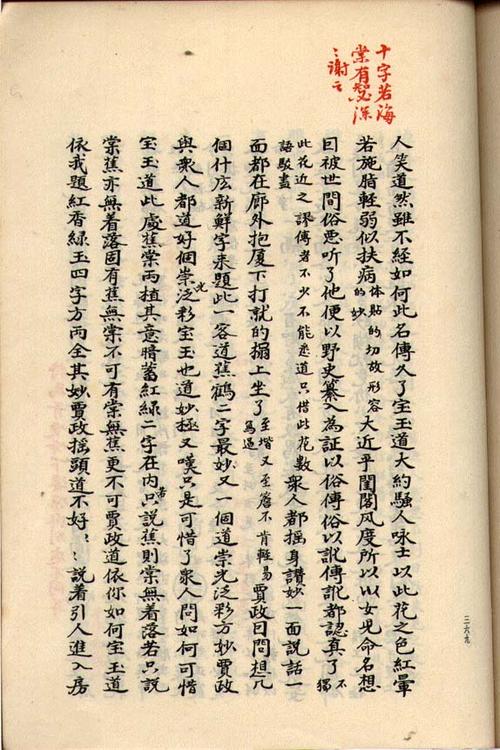 十字若海
棠有知必深
ミ謝之
人笑道然雖不經如何此名傳久了宝玉道大約騷人咏士以此花之色紅暈
若施脂輕弱似扶病体貼的切故形容的妙大近乎閨閣风度所以以女児命名想
因被世間俗悪听了他便以野史纂入為証以俗傳俗以訛傳訛都認真了不獨
此花近之謬傳者不少不能悉道只借此花数語駁盡衆人都摇身讃妙一面說話一
面都在廊外抱厦下打就的榻上坐了至堦又至簷不肯輕易寫過賈政因問想几
個什庅新鮮字来題此一客道蕉鶴二字最妙又一個道崇光泛彩方妙賈政
與衆人都道好個崇光泛彩宝玉也道妙極又嘆只是可惜了衆人問如何可惜
宝玉道此處蕉棠兩植其意暗蓄紅緑二字在内若只說蕉則棠無着落若只說
棠蕉亦無着落固有蕉無棠不可有棠無蕉更不可賈政道依你如何宝玉道
依我題紅香緑玉四字方兩全其妙賈政摇頭道不好ミミ說着引人進入房
三六九